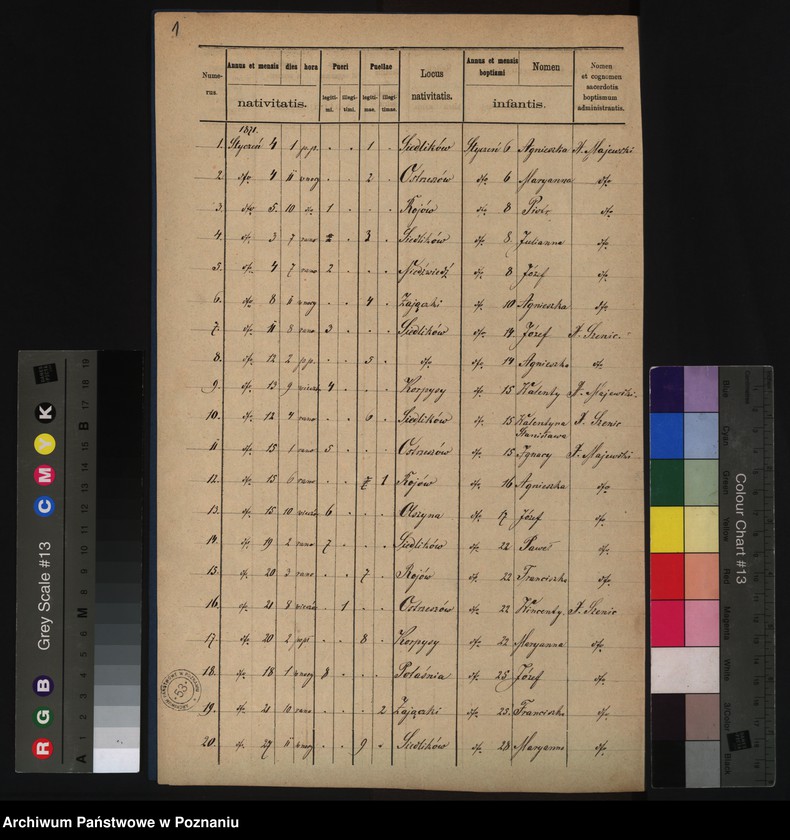 1
Numerus. Annus et mensis dies hora nativitatis. Pueri legitimi. illegitimi. Puellae legitimae. illegitimae. Locus nativitatis. Annus et mensis baptismi Nomen infantis. Nomen et cognomen sacerdotis baptismum administrantis.
1871.
1. Styczeń 4 1 p.p. . . 1 . Siedlików Styczeń 6 Agnieszka Majewski
2. dto 4 . . 2 . Ostrzeszów dto 6 Maryanna dto
3. dto 5. 10 dto 1 . . . Rojów dto 8 Piotr dto
4. dto 3 7 rano . . 3 . Siedlików dto 8 Julianna dto
5. dto 4 7 rano 2 . . . Niedźwiedź dto 8 Józef dto
6. dto 8 . . 4 . Zajączki dto 10 Agnieszka dto
7. dto 11 8 rano 3 . . . Siedlików dto 14 Józef Szenic
8. dto 12 2 p.p. . . 5 . dto dto 14 Agnieszka dto
9. dto 13 9 4 . . . Korpysy dto 15 Walenty Majewski
10. dto 12 4 rano . . 6 . Siedlików dto 15 Walentyna Szenic
Stanisława
11 dto 15 1 rano 5 . . . Ostrzeszów dto 15 Ignacy Majewski
12. dto 15 6 rano . . 1 Rojów dto 16 Agnieszka dto
13. dto 15 10 6 . . . Olszyna dto 17 Józef dto
14. dto 19 2 rano 7 . . . Siedlików dto 22 Paweł dto
15. dto 20 3 rano . . 7 . Rojów dto 22 Franciszka dto
16. dto 21 8 . 1 . . Ostrzeszów dto 22 Wincenty Szenic
17. dto 20 2 . . 8 . Korpysy dto 22 Maryanna dto
18. dto 18 1 8 . . . Potaśnia dto 25 Józef dto
19. dto 21 10 rano . . . 2 Zajączki dto 25 Franciszka dto
20. dto 27 . . 9 . Siedlików dto 28 Maryanna dto
53
Grey Scale #13
R G B M C M Y K
A 1 2 3 4 5 6 M 8 9 10 11 12 13 14 15 B 17 18 19
Colour Chart #13
Blue Cyan Green Yellow Red Magenta White 3/Color Black
Archiwum Państwowe w Poznaniu